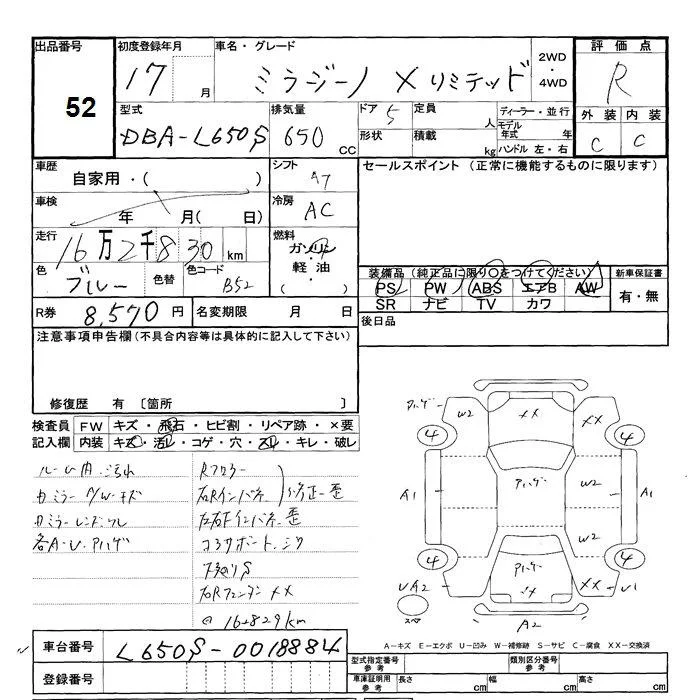 出品番号 初度登録年月 車名・グレード 2WD・4WD 評価点
52 17 月 ミラジーノ Xリミテッド R
型式 排気量 ドア 5 定員 人 ディーラー・並行 外装 内装
DBA-L650S 650 CC 形状 積載 kg モデル年式 年 ハンドル 左・右 C C
車歴 自家用・( ) シフト A7 セールスポイント (正常に機能するものに限ります)
車検 年 月( 日) 冷房 AC
走行 16万2千830km 燃料 ガソリン・軽油・( )
色 ブルー 色替 色コード B52 装備品 (純正品に限り○をつけてください) 新車保証書
PS PW ABS エアB AW 有・無
SR ナビ TV カワ
R券 8,570 円 名変期限 月 日 後日品
注意事項申告欄(不具合内容等は具体的に記入して下さい)
修復歴 有 〔箇所 〕
検査員記入欄 FW キズ・飛石・ヒビ割・リペア跡・×要
内装 キズ・汚レ・コゲ・穴・スレ・キレ・破レ
ルーム内 汚れ
Rフロアー
右Rインパネ
修正 歪
カミラー
左右Fインパネ 歪
コアサポート
各A-U. アハゲ
下廻りS
右Rフェンダー XX
@ 162829km
アハゲ W2 XX XX
4 4
A1 アハゲ W2 A1
W2
4 4
UA2 アハゲ XX U1
スペア
A2
A-キズ E-エクボ U-凹み W-補修跡 S-サビ C-腐食 XX-交換済
車台番号 L650S-0018884
型式指定番号 参考 類別区分番号 参考
登録番号 車庫証明用 参考 長さ cm 幅 cm 高さ cm